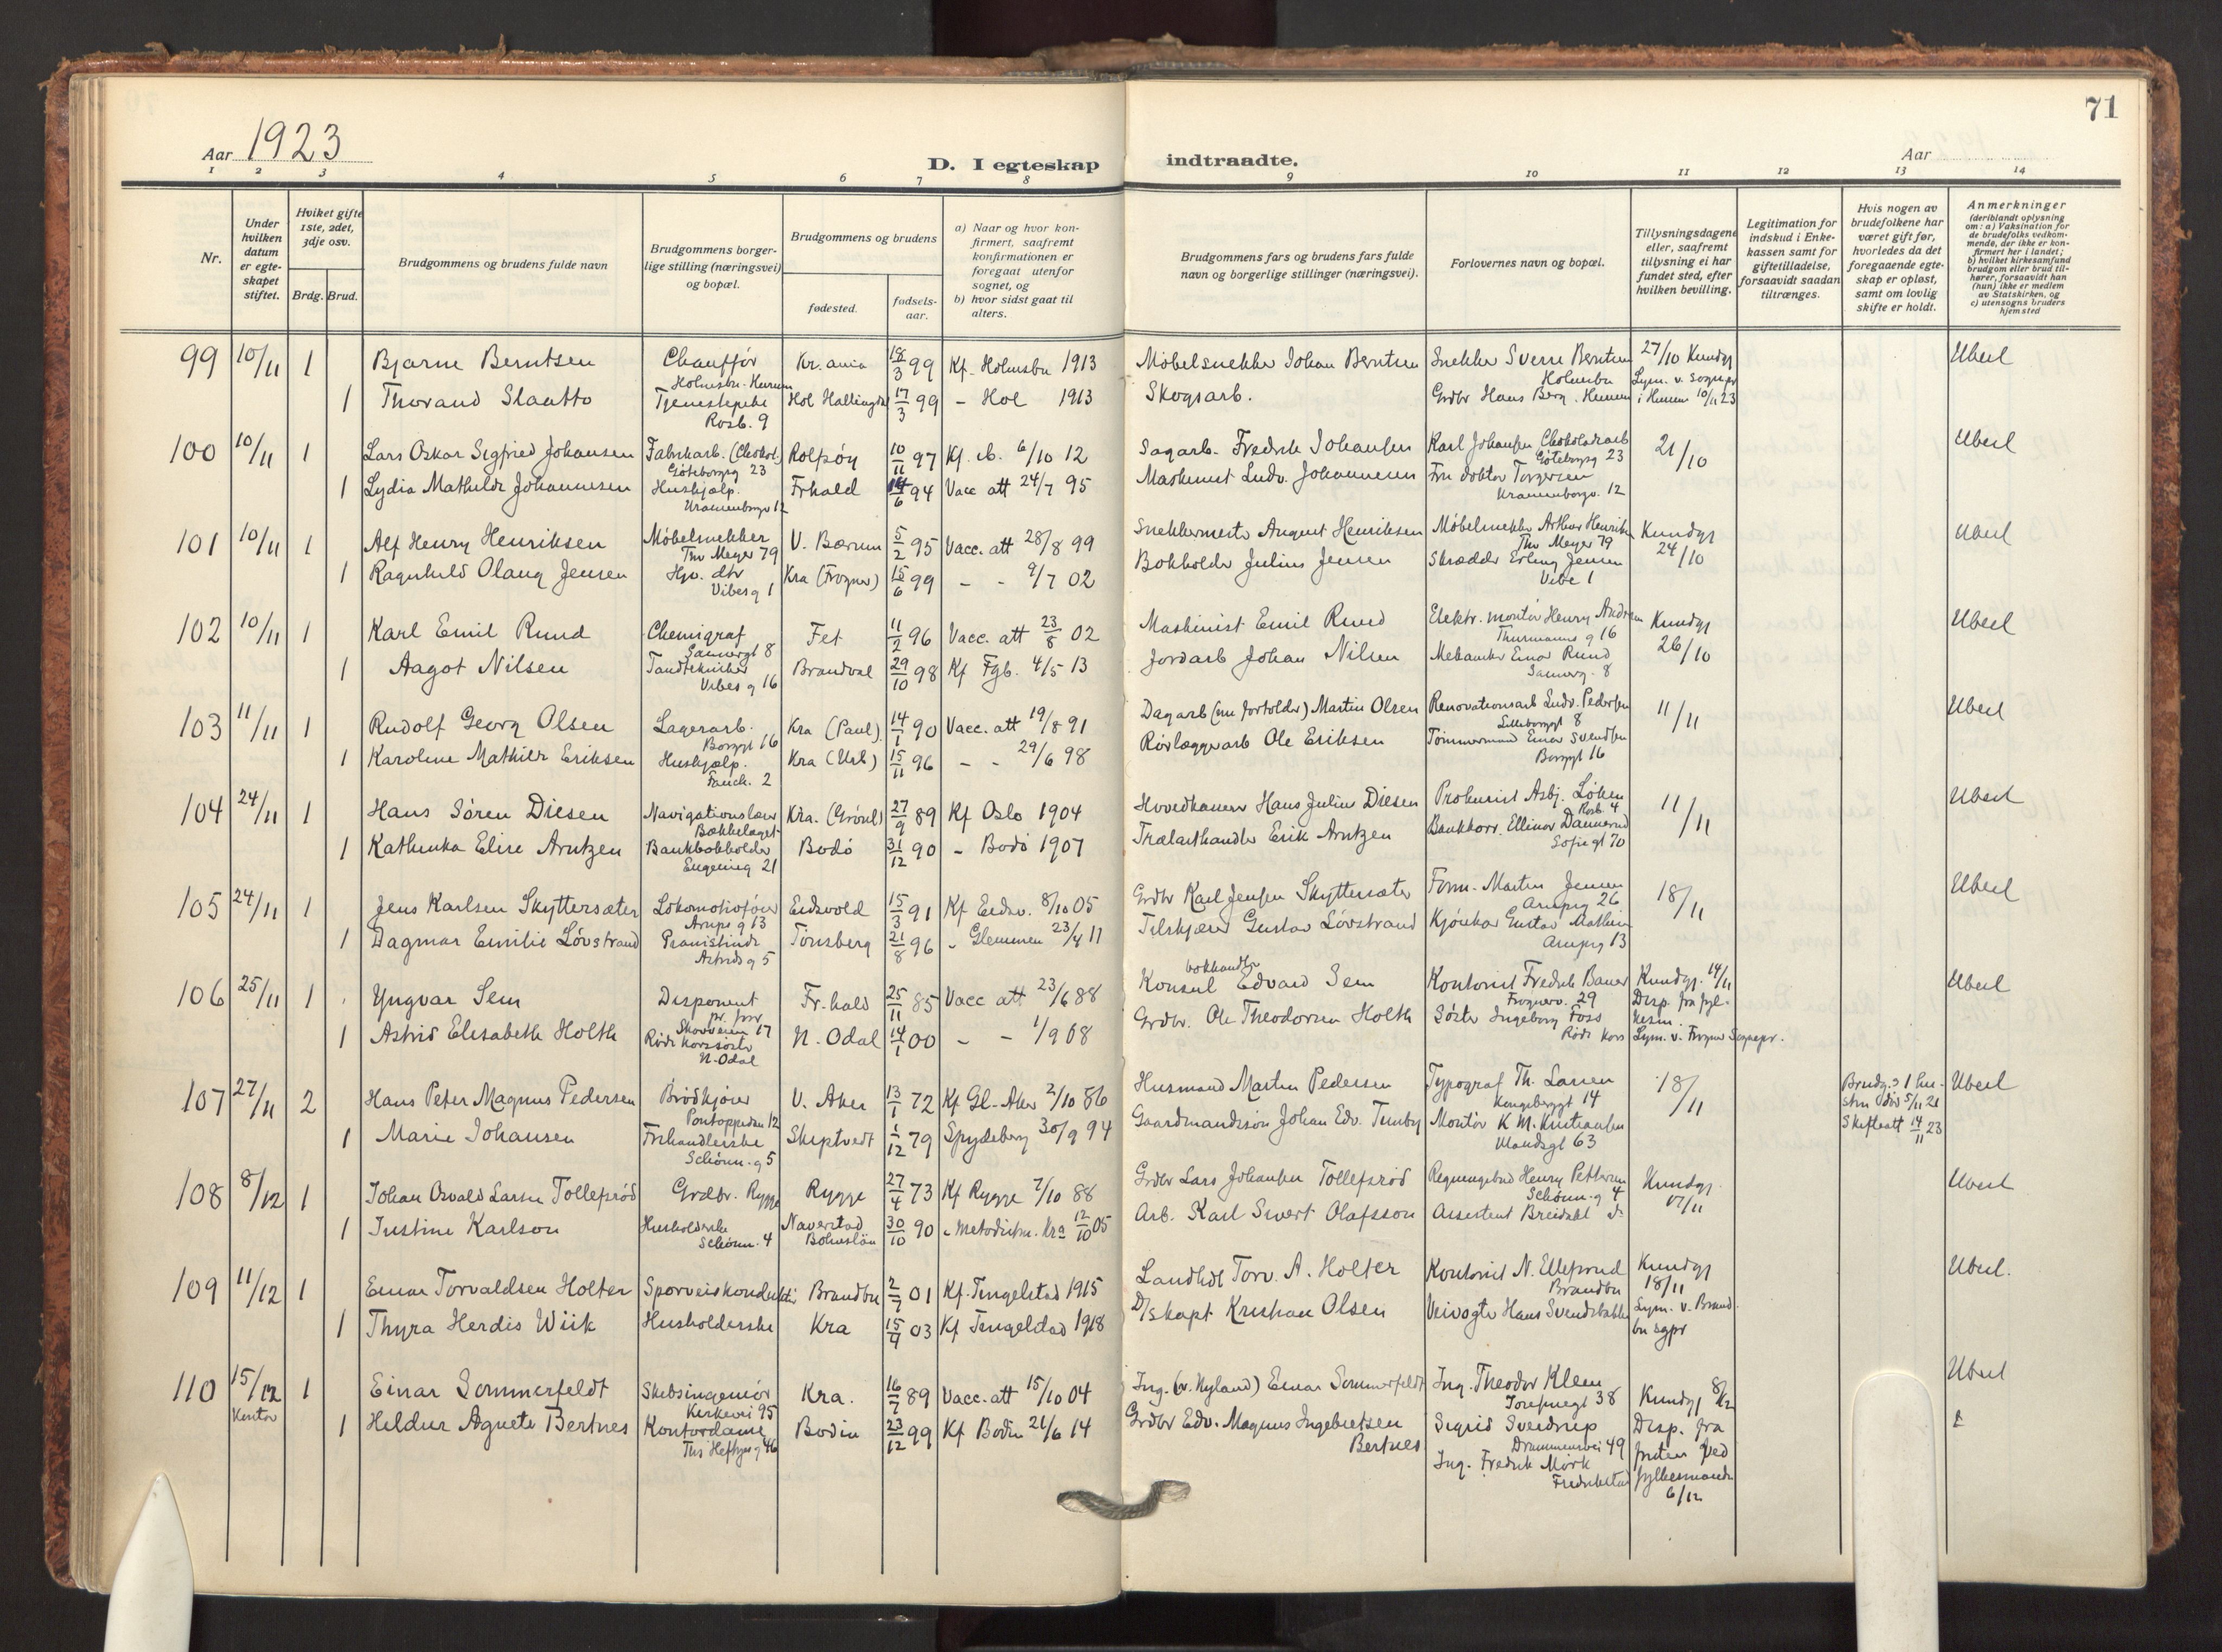 71
Aar 1923
D. I egteskap indtraadte.
Aar
1 2 3 4 5 6 7 8 9 10 11 12 13 14
Nr.
Under hvilken datum er egteskapet stiftet.
Hviket gifte 1ste, 2det, 3dje osv.
Brdg. Brud.
Brudgommens og brudens fulde navn
Brudgommens borgerlige stilling (næringsvei) og bopæl.
Brudgommens og brudens
fødested.
fødselsaar.
a) Naar og hvor konfirmert, saafremt konfirmationen er foregaat utenfor sognet, og
b) hvor sidst gaat til alters.
Brudgommens fars og brudens fars fulde navn og borgerlige stillinger (næringsvei).
Forlovernes navn og bopæl.
Tillysningsdagene eller, saafremt tillysning ei har fundet sted, efter hvilken bevilling.
Legitimation for indskud i Enkekassen samt for giftetilladelse, forsaavidt saadan tiltrænges.
Hvis nogen av brudefolkene har været gift før, hvorledes da det foregaaende egteskap er opløst, samt om lovlig skifte er holdt.
Anmerkninger (deriblandt oplysning om: a) Vaksination for de brudefolks vedkommende, der ikke er konfirmert her i landet; b) hvilket kirkesamfund brudgom eller brud tilhører, forsaavidt han (hun) ikke er medlem av Statskirken, og c) utensogns bruders hjemsted
99 10/11 1 Bjarne Berntsen Chauffør Kr.ania 18/3 99 Kf. Holmsbu 1913 Møbelsnekker Johan Berntsen Snekker Sverre Berntsen 27/10 Kundgj Ubesl
Holmsbu. Hurum Holmsbu Lysn. v. sognepr
1 Thorand Slaatto Tjenestepike Hol Hallingdal 17/3 99 - Hol 1913 Skogsarb. Grdbr Hans Berg. Hurum i Hurum 10/11 23
Rosb. 9
100 10/11 1 Lars Oskar Sigfried Johansen Fabrikarb. (Chokol.) Rolfsøy 10/11 97 Kf. 6/10 12 Sagarb. Fredrik Johansen Karl Johansen Chokoladearb 21/10 Ubesl
Göteborgg 23 Göteborgg 23
1 Lydia Mathilde Johannesen Hushjælp. Frhald 14/6 94 Vacc att 24/7 95 Maskinist Ludv. Johannesen Fru doktor Torgersen
Uranienborgv 12 Uranienborgv. 12
101 10/11 1 Alf Henry Henriksen Møbelsnekker V. Bærum 5/2 95 Vacc. att 28/8 99 Snekkermester August Henriksen Møbelsnekker Arthur Henriksen Kundgj Ubesl
Thv Meyer 79 Thv Meyer 79 24/10
1 Ragnhild Olaug Jensen Hjv. dtr Kra (Frogner) 15/6 99 - - 9/7 02 Bokholder Julius Jensen Skrædder Erling Jensen
Vibes g 1 Vibe 1
102 10/11 1 Karl Emil Rund Chemigraf Fet 11/2 96 Vacc. att 23/8 02 Maskinist Emil Rund Elektr. montör Henry Andersen Kundgj Ubesl
Sannergt 8 Thurmanns g 16 26/10
1 Aagot Nilsen Tandtekniker Brandval 29/10 98 Kf Fgb. 4/5 13 Jordarb Johan Nilsen Mekaniker Einar Rund
Vibes g 16 Sannerg. 8
103 11/11 1 Rudolf Georg Olsen Lagerarb. Kra (Paul) 14/1 90 Vacc. att 19/8 91 Dagarb (nu forholder) Martin Olsen Renovationsarb Ludv. Pedersen 11/11 Ubesl
Borggt 16 Lilleborggt 8
1 Karoline Mathilde Eriksen Hushjælp. Kra (Urb) 15/11 96 - - 29/6 98 Rørlæggerarb Ole Eriksen Tømmermand Einar Svendsen
Fauch. 2 Borggt 16
104 24/11 1 Hans Søren Diesen Navigationslærer Kra. (Grønl) 27/9 89 Kf Oslo 1904 Hovedkasserer Hans Julius Diesen Prokurist Asbj. Løken 11/11 Ubesl
Bækkelaget Rosb. 4
1 Kathinka Elise Arntzen Bankbokholder Bodø 31/12 90 - Bodø 1907 Trælasthandler Erik Arntzen Bankkorr. Ellinor Dannerud
Eugenieg 21 Sofiegt 70
105 24/11 1 Jens Karlsen Skyttersæter Lokomotivfører Eidsvold 15/3 91 Kf Eidsv. 8/10 05 Grdbr Karl Jensen Skyttersæter Form. Martin Jensen 18/11 Ubesl
Arups g 13 Arupsg 26
1 Dagmar Emilie Løvstrand Pianistinde Tønsberg 21/8 96 - Glemmen 23/4 11 Tilskjærer Gustav Løvstrand Kjørekar Gustav Mathisen
Astrids g 5 Arupsg 13
106 25/11 1 Yngvar Sem Disponent Fr.hald 25/11 85 Vacc att 23/6 88 Konsul bokhandler Edvard Sem Kontorist Fredrik Bauer Kundgj. 14/11 Ubesl
Skovveien 17 Frognerv. 29 Disp. fra fyl-
1 Astrid Elisabeth Holth Røde korssøster N. Odal 14/1 00 - - 1/9 08 Grdbr. Ole Theodorsen Holth Søster Ingeborg Foss kesm.
N. Odal Røde Kors Lysn. v. Frogner Sognepr.
107 27/11 2 Hans Peter Magnus Pedersen Brødkjører V. Aker 13/1 72 Kf Gl. Aker 2/10 86 Husmand Martin Pedersen Typograf Th. Larsen 18/11 Brudg.s 1 hu- Ubesl
Pontoppidan 12 Kongsberggt 14 stru död 5/11 21
1 Marie Johansen Frihandlerske Skiptvedt 1/12 79 Spydeberg 30/9 94 Gaardmandssøn Johan Edv. Tumby Montør K M. Kristiansen Skifteatt 14/11 23
Schönn.g 5 Vlandsgt 63
108 8/12 1 Johan Osvald Larsen Tollefsrød Grdbr. Rygge Rygge 27/4 73 Kf Rygge 7/10 88 Grdbr Lars Johansen Tollefsrød Regningsbud Henry Pettersen Kundgj. Ubesl
Schönn.g 4 17/11
1 Justine Karlson Husholderske Naverstad 30/10 90 - Metodistm. Kra 12/10 05 Arb. Karl Sivert Olafsson Assistent Breidahl
Schönn. 4 Bohuslän
109 11/12 1 Einar Torvaldsen Holter Sporveiskonduktør Brandbu 2/7 01 Kf. Tingelstad 1915 Landhdl Torv. A. Holter Kontorist N. Ellefsrud Kundgj Ubesl.
Brandbu 18/11
1 Thyra Herdis Wiik Husholderske Kra 15/4 03 Kf Tingelstad 1918 D/skapt Kristian Olsen Veivogter Hans Svendsbakke Lysn. v. Brand-
bu sgpr
110 15/12 1 Einar Sommerfeldt Skibsingeniør Kra. 16/7 89 Vacc. att 15/10 04 Ing. (v. Nyland) Einar Sommerfeldt Ing. Theodor Klem Kundgj 8/12 Ubesl
Kontor Kirkevei 95 Josefinegt 38
1 Heldur Agnete Bertnes Kontordame Bodin 23/12 99 Kf Bodin 21/6 14 Grdbr Edv. Magnus Ingebretsen Sigrid Sverdrup Disp. fra
Ths Heftyes g 46 Bertnes Drammensvei 49 fristen ved
Ing. Fredrik Mørk fylkesmanden
Fredrikstad 6/12